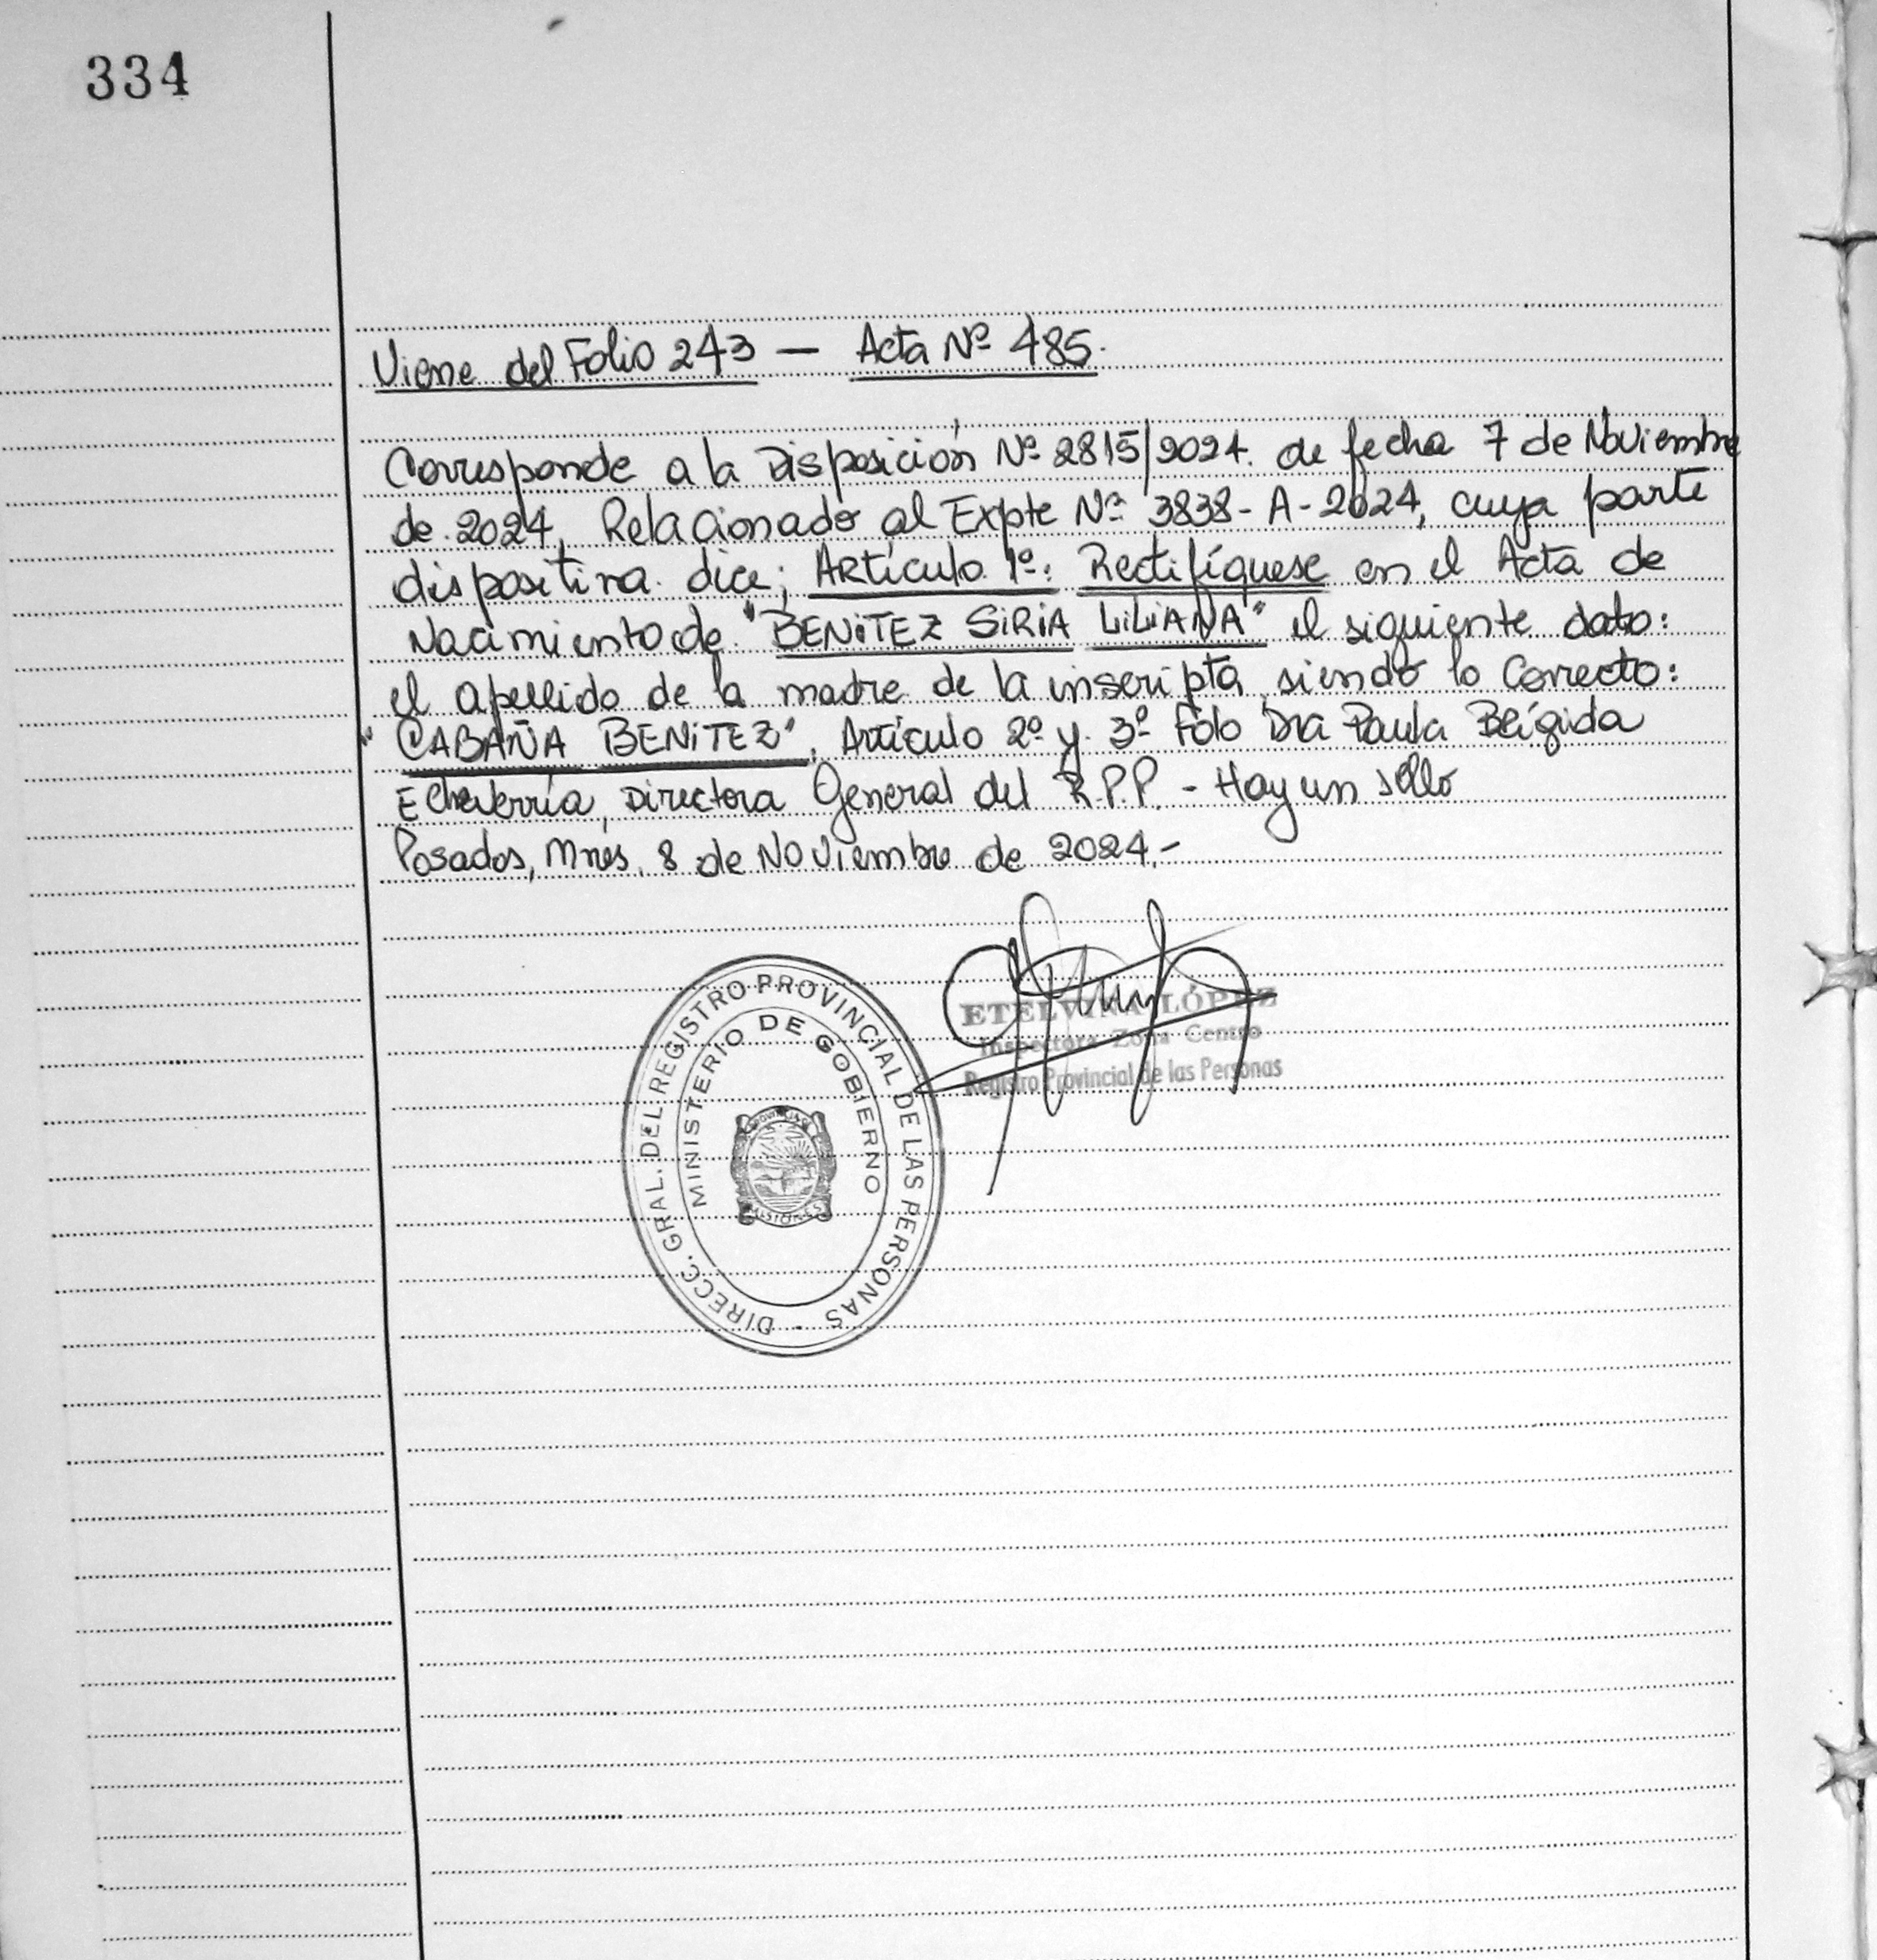 334
Viene del Folio 243 — Acta Nº 485.
Corresponde a la Disposición Nº 2815/2024. de fecha 7 de Noviembre
de 2024, Relacionado al Expte Nº 3838-A-2024, cuya parte
dispositiva dice; Artículo 1º: Rectifíquese en el Acta de
Nacimiento de "BENITEZ SIRIA LILIANA" el siguiente dato:
el apellido de la madre de la inscripta, siendo lo Correcto:
"CABAÑA BENITEZ", Artículo 2º y 3º Fdo Dra Paula Brígida
Echeverría, Directora General del R.P.P. - Hay un sello
Posadas, Mnes, 8 de Noviembre de 2024.-
ETELVINA LÓPEZ
Inspectora Zona Centro
Registro Provincial de las Personas
DIRECC. GRAL. DEL REGISTRO PROVINCIAL DE LAS PERSONAS -
MINISTERIO DE GOBIERNO
PROVINCIA DE
MISIONES